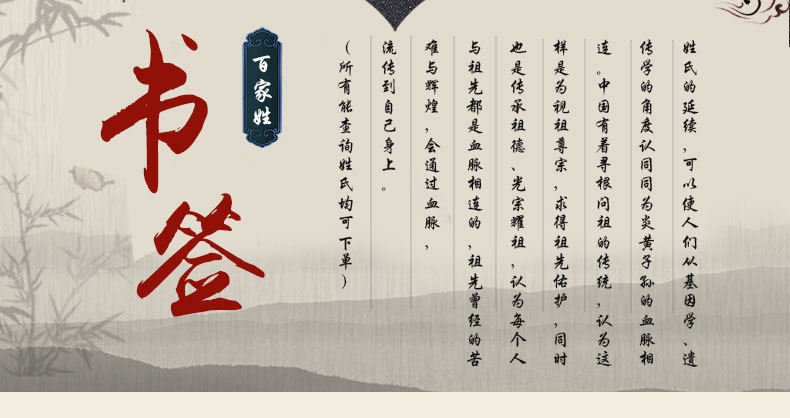 书签
百家姓
姓氏的延续，可以使人们从基因学、遗
传学的角度认同同为炎黄子孙的血脉相
连。中国有着寻根问祖的传统，认为这
样是为视祖尊宗，求得祖先佑护，同时
也是传承祖德、光宗耀祖，认为每个人
与祖先都是血脉相连的，祖先曾经的苦
难与辉煌，会通过血脉，
流传到自己身上。
（所有能查询姓氏均可下单）